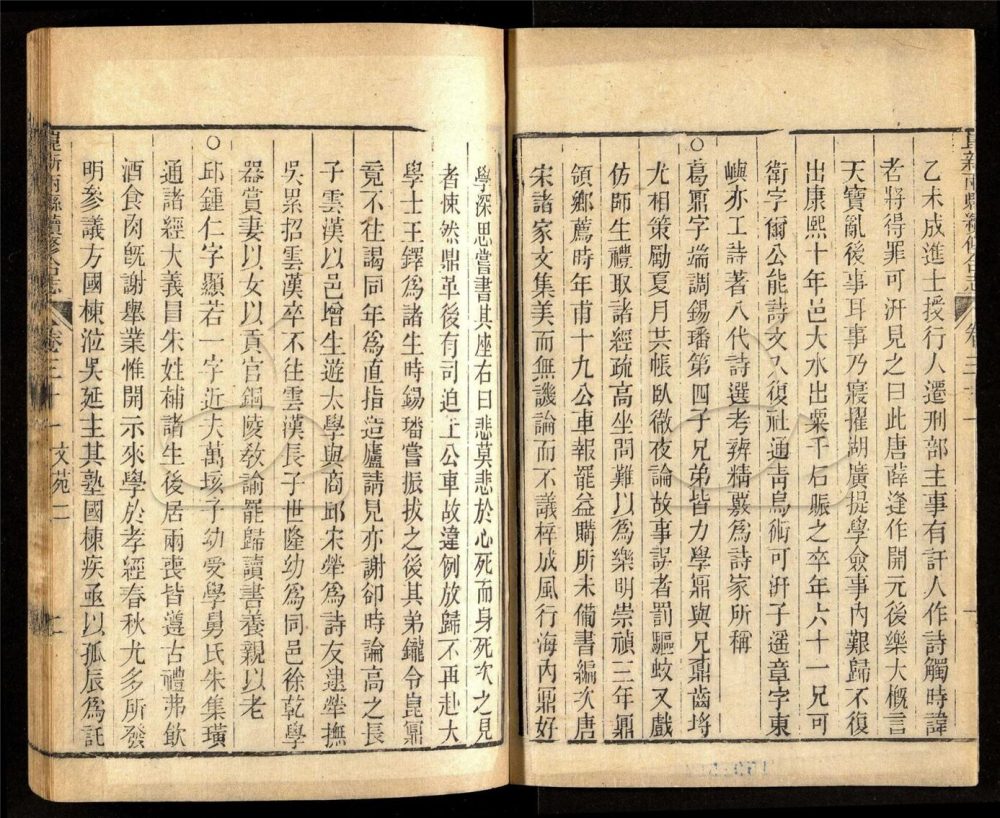 崑新兩縣續修合志 卷三十一
乙未成進士授行人遷刑部主事有訐人作詩觸時諱
者將得罪可汧見之曰此唐薛逢作開元後樂大概言
天寶亂後事耳事乃寢擢湖廣提學僉事內艱歸不復
出康熙十年邑大水出粟千石賑之卒年六十一兄可
衛字爾公能詩文入復社通靑烏術可汧子遥章字東
嶼亦工詩著八代詩選考辨精覈爲詩家所稱
○葛鼏字端調錫璠第四子兄弟皆力學鼏與兄鼐齒將
尤相策勵夏月共帳臥徹夜論故事誤者罰驅蚊又戲
仿師生禮取諸經疏高坐問難以爲樂明崇禎三年鼏
領鄉薦時年甫十九公車報罷益購所未備書編次唐
宋諸家文集美而無譏論而不議梓成風行海內鼏好
學深思嘗書其座右曰悲莫悲於心死而身死次之見
者悚然鼎革後有司迫上公車故違例放歸不再赴大
學士王鐸爲諸生時錫璠嘗振拔之後其弟鑨令崑鼏
竟不往謁同年爲直指造廬請見亦謝卻時論高之長
子雲漢以邑增生遊太學與商邱宋犖爲詩友逮犖撫
吳累招雲漢卒不往雲漢長子世隆幼爲同邑徐乾學
器賞妻以女以貢官銅陵敎諭罷歸讀書養親以老
○邱鍾仁字顯若一字近夫萬垓子幼受學舅氏朱集璜
通諸經大義冒朱姓補諸生後居兩喪皆遵古禮弗飮
酒食肉旣謝舉業惟開示來學於孝經春秋尤多所發
明參議方國棟涖吳延主其塾國棟疾亟以孤辰爲託
崑新兩縣續修合志 卷三十 文苑二 二